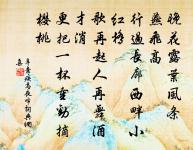 晚花露葉風條
燕飛高
行過長廊西畔小
紅橋
歌再起人再舞酒
才消
更把一杯重勸摘
櫻桃